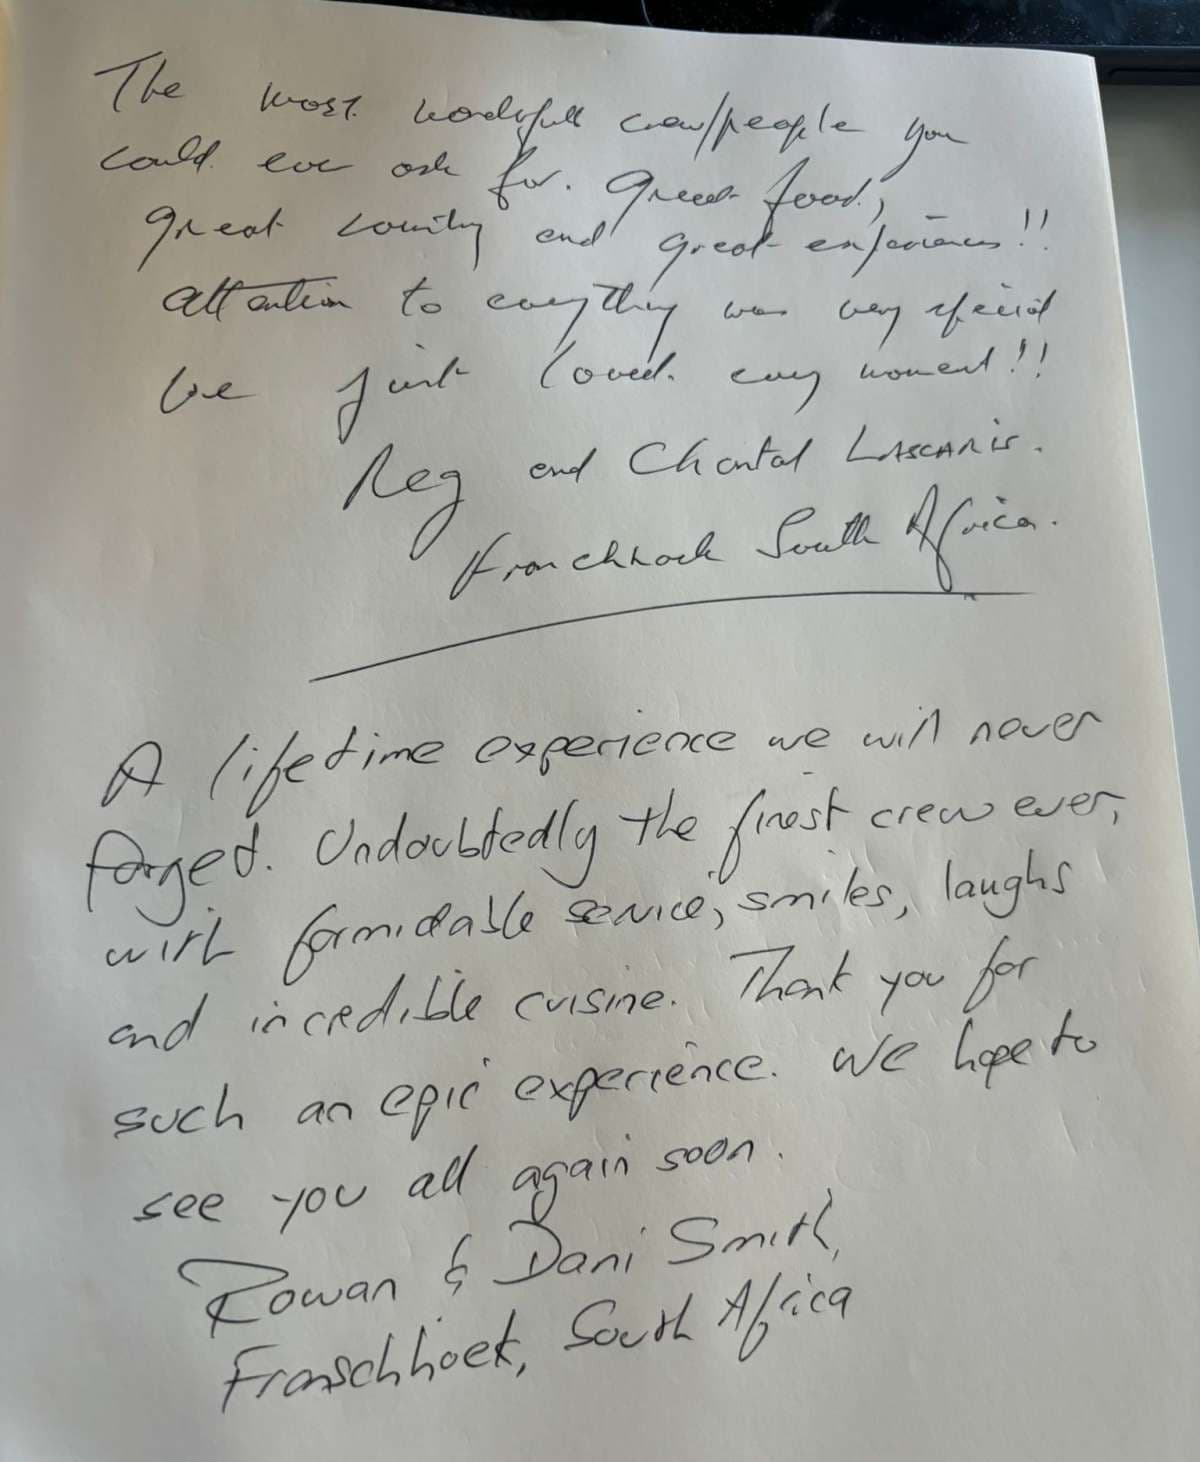 The most wonderfull crew/people you
could ever ask for. Great food,
great and great experiences!!
Attention to everything was very special
We just loved every moment!!
Reg and Chantal LASCARIS.
Franchhoek South Africa.
A lifetime experience we will never
forget. Undoubtedly the finest crew ever,
with formidable service, smiles, laughs
and incredible cuisine. Thank you for
such an epic experience. We hope to
see you all again soon.
Rowan & Dani Smith,
Franschhoek, South Africa